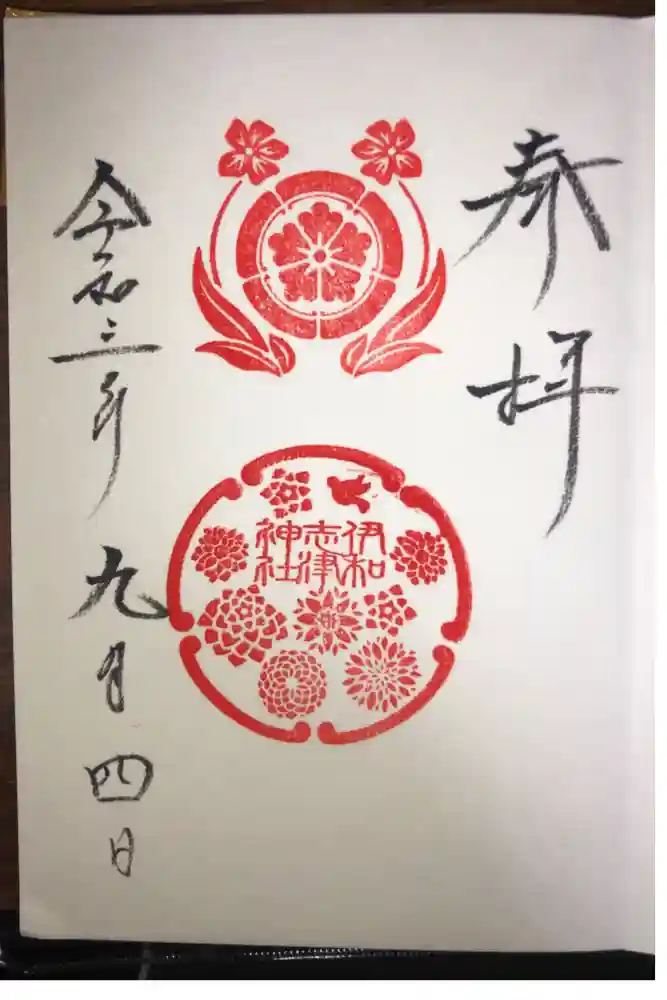 奉拝
伊和
志津
神社
令和三年九月四日